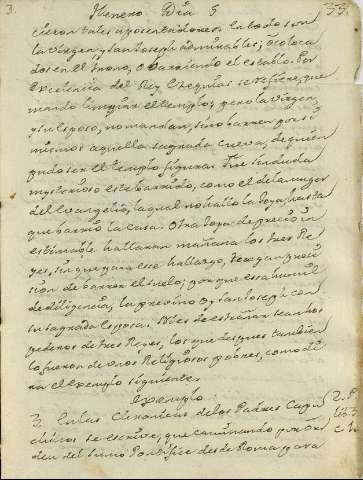 3. Henero. Dia 5 33.
cieron tales aposentadores. En todo son
la Virgen, y San Joseph admirables; ò coloca
dos en el trono, ò barriendo el establo. Por
excelencia del Rey Ezequias se refiere, que
mandò limpiar el templo; pero la Virgen
y su Esposo, no mandan, sino barren por si
mismos aquella sagrada cueva, de quien
pudo ser el Templo figura. Fue sin duda
mysterioso este barrido, como el de la muger
del Evangelio, la qual no hallò la joya hasta
que barriò la casa. Otra joya de precio in
estimable hallaràn mañana los tres Re
yes, sin que para ese hallazgo, tengan preci
sion de barrer el suelo; porque esa humil
de diligencia, la previno oy San Joseph con
su sagrada Esposa. No es de estrañar sean hos
pederos de tres Reyes, los que despues tambien
lo fueron de unos Religiosos pobres, como di
rà el exemplo siguiente.
Exemplo
3. En las Chronicas de los Padres Capu
chinos se escrive, que caminando por or
den del Sumo Pontifice desde Roma para
2. P.
lib. 3